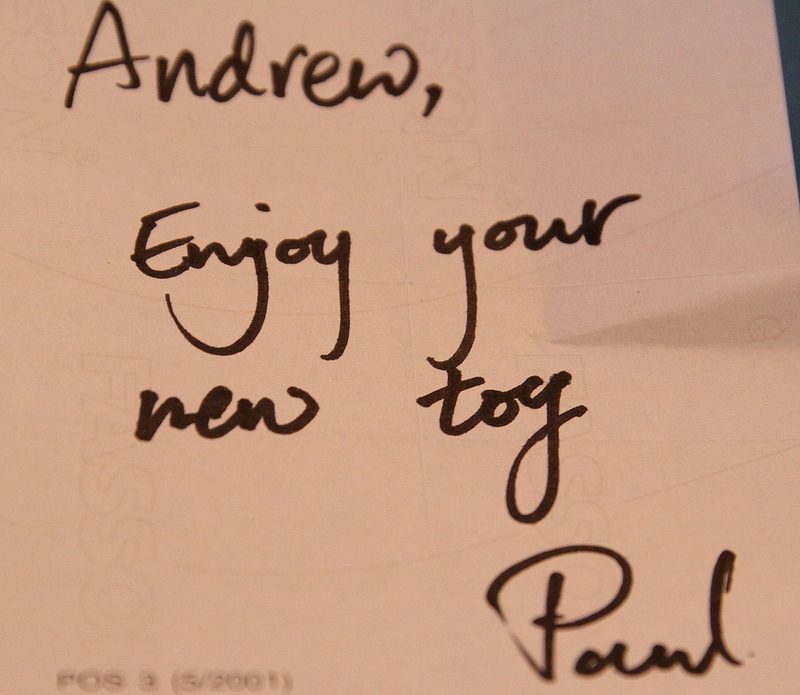 Andrew,
Enjoy your
new toy
Paul
POS 3 (5/2001)
FASSON